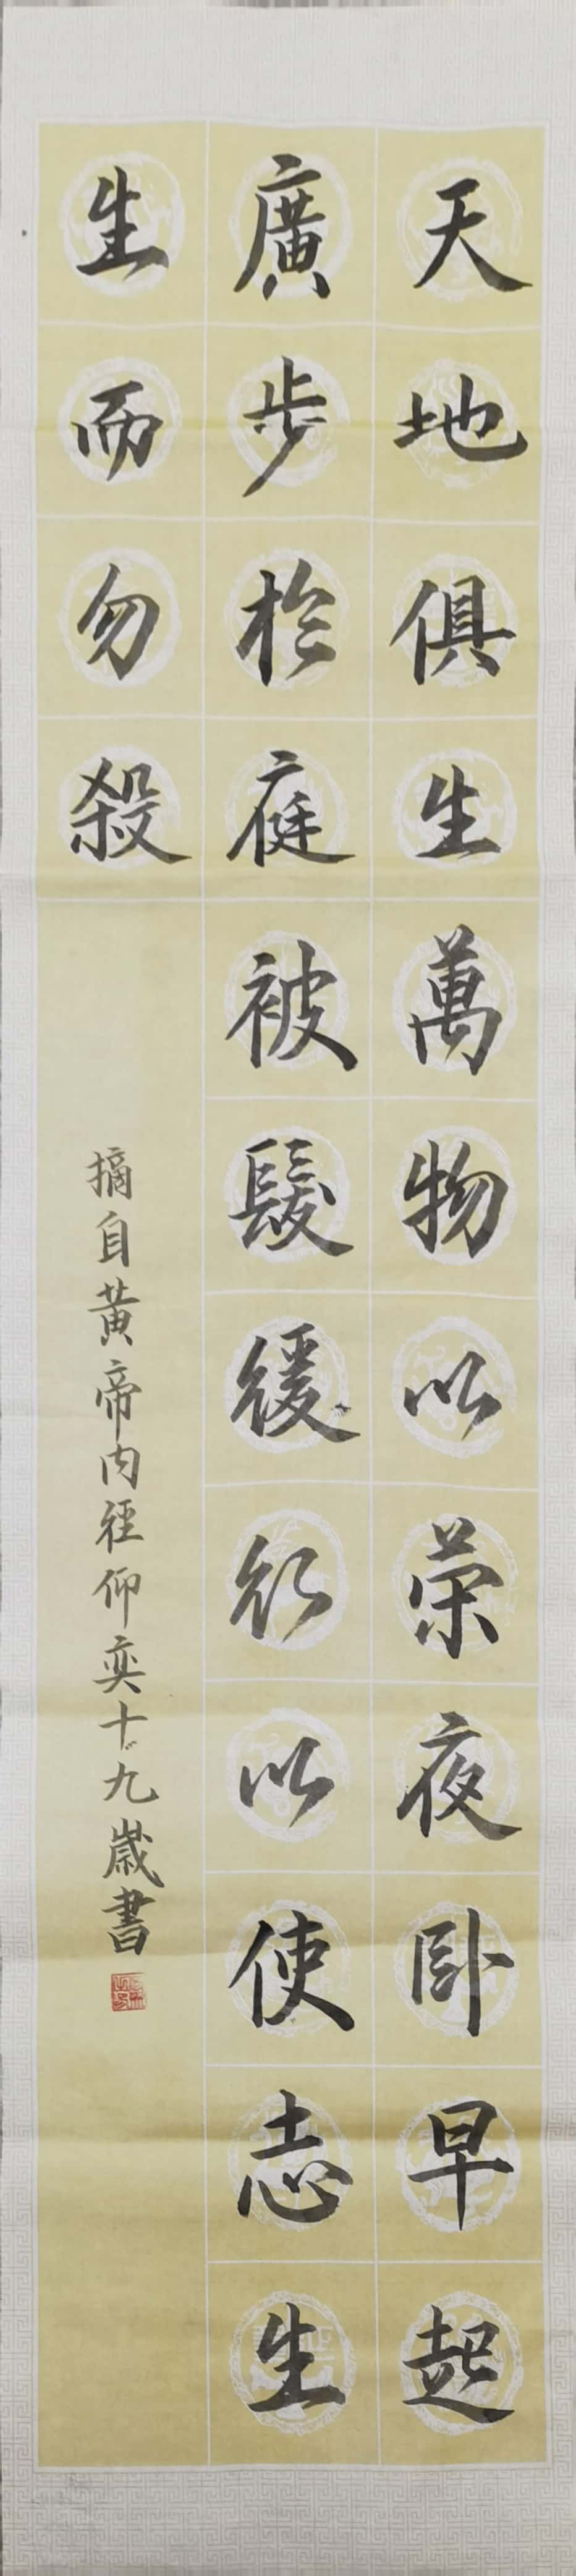 天地俱生萬物以榮夜卧早起
廣步於庭被髮緩行以使志生
生而勿殺
摘自黃帝内径仰奕十九歲書